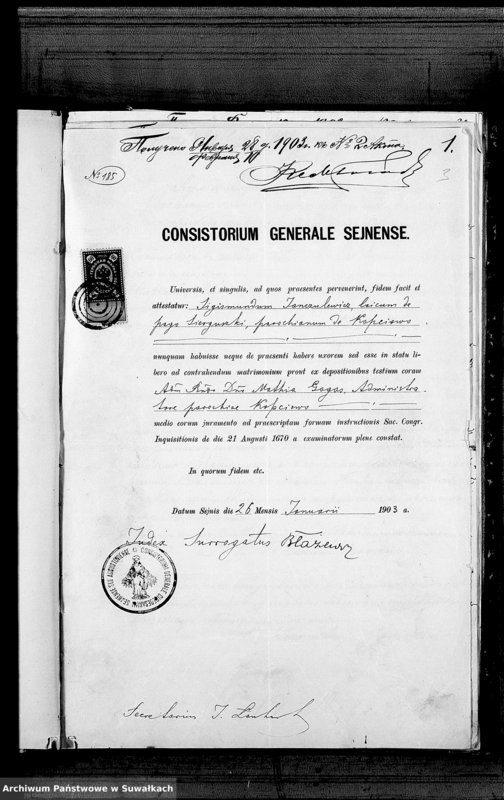 Получено Января 28 д. 1903 г.
февраля 10
1.
3
№ 185
CONSISTORIUM GENERALE SEJNENSE.
Universis, et singulis, ad quos praesentes pervenerint, fidem facit et
attestatur: Sigismundum Janczulewicz, laicum de
pago Sierguszki, parochianum de Kopciowo
nunquam habuisse neque de praesenti habere uxorem sed esse in statu li-
bero ad contrahendum matrimonium prout ex depositionibus testium coram
Adm Rndo Dno Mathia Gogas, Administra-
tore parochiae Kopciowo
medio eorum juramento ad praescriptam formam instructionis Sac. Congr.
Inquisitionis de die 21 Augusti 1670 a examinatorum plene constat.
In quorum fidem etc.
Datum Sejnis die 26 Mensis Januarii 1903 a.
Judex Surrogatus Błażewicz
Secretarius J.
Archiwum Państwowe w Suwałkach